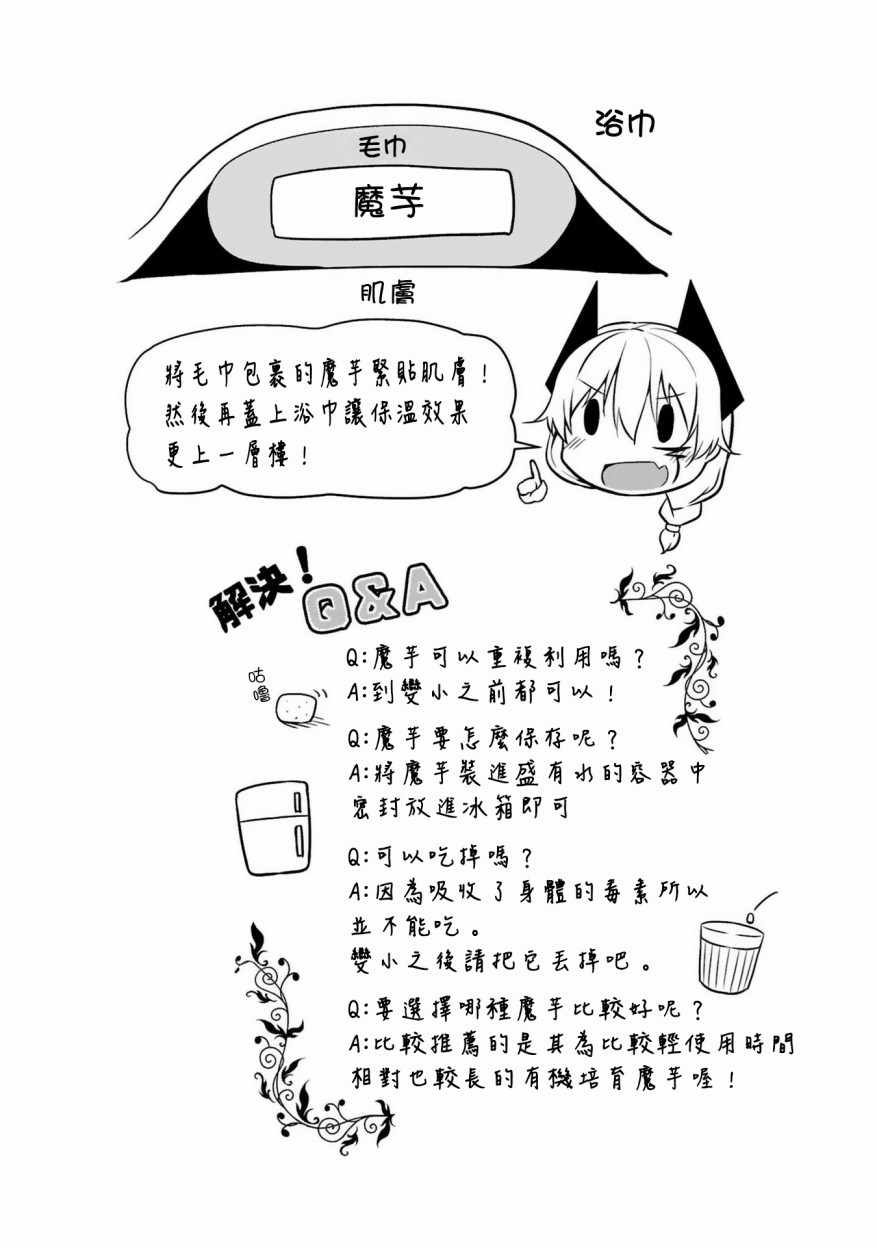 浴巾
毛巾
魔芋
肌膚
將毛巾包裹的魔芋緊貼肌膚！
然後再蓋上浴巾讓保溫效果
更上一層樓！
解決！
Q&A
Q:魔芋可以重複利用嗎？
A:到變小之前都可以！
咕嚕
Q:魔芋要怎麼保存呢？
A:將魔芋裝進盛有水的容器中
密封放進冰箱即可
Q:可以吃掉嗎？
A:因為吸收了身體的毒素所以
並不能吃。
變小之後請把它丟掉吧。
Q:要選擇哪種魔芋比較好呢？
A:比較推薦的是其為比較輕使用時間
相對也較長的有機培育魔芋喔！